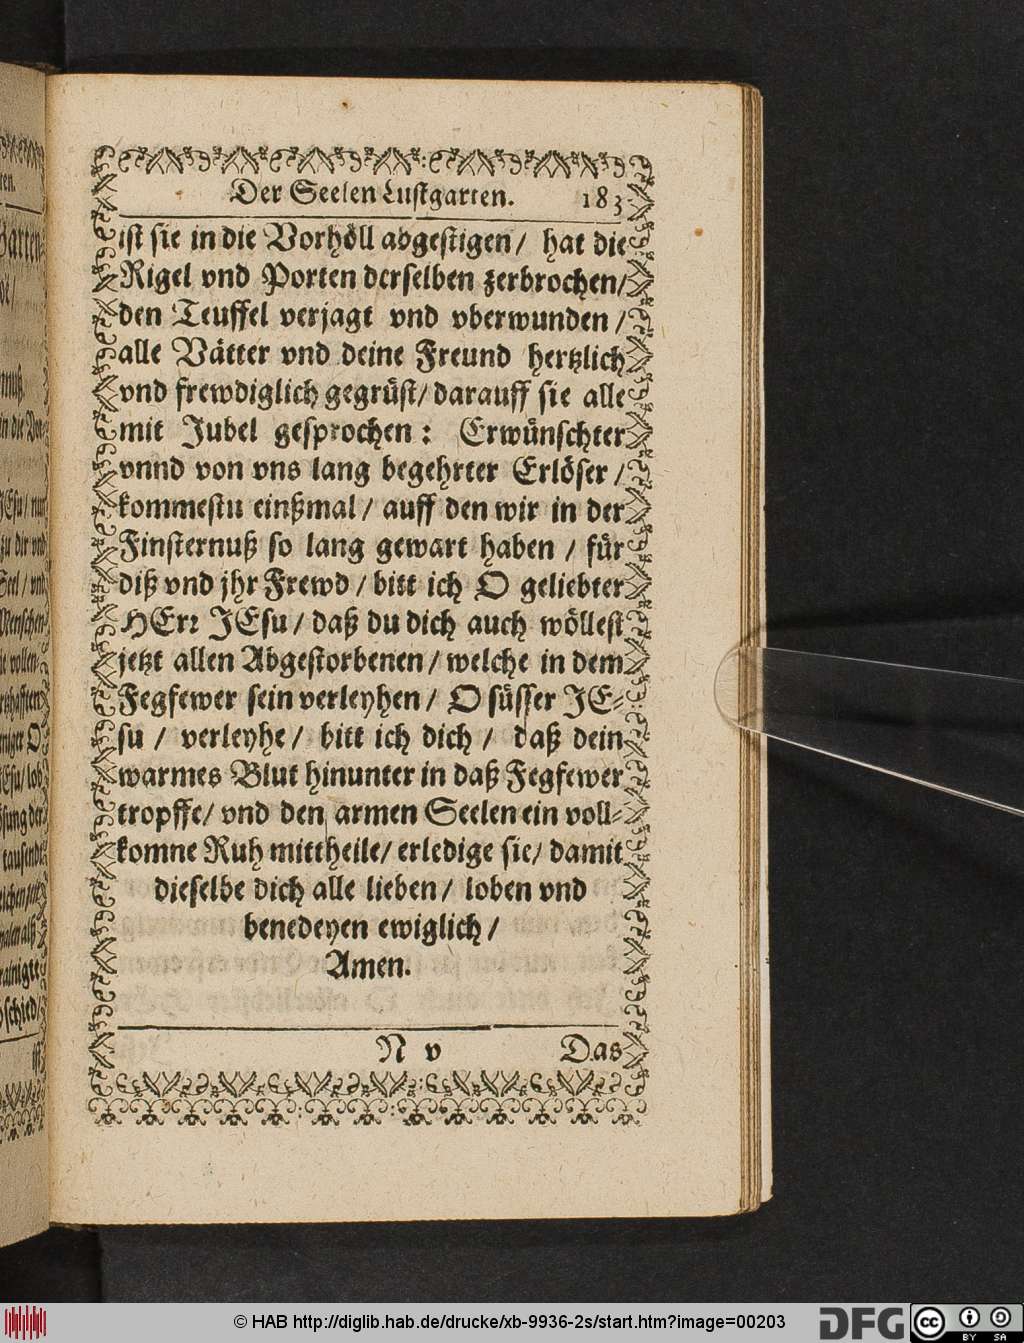 Der Seelen Lustgarten. 183
ist sie in die Vorhöll abgestigen / hat die
Rigel vnd Porten derselben zerbrochen/
den Teuffel verjagt vnd vberwunden /
alle Vätter vnd deine Freund hertzlich
vnd frewdiglich gegrüst/ darauff sie alle
mit Jubel gesprochen: Erwünschter
vnnd von vns lang begehrter Erlöser /
kommestu einßmal / auff den wir in der
Finsternuß so lang gewart haben / für
diß vnd jhr Frewd / bitt ich O geliebter
HErr JEsu / daß du dich auch wöllest
jetzt allen Abgestorbenen / welche in dem
Fegfewer sein verleyhen / O süsser JE-
su / verleyhe / bitt ich dich / daß dein
warmes Blut hinunter in daß Fegfewer
tropffe/ vnd den armen Seelen ein voll-
komne Ruh mittheile/ erledige sie/ damit
dieselbe dich alle lieben / loben vnd
benedeyen ewiglich /
Amen.
N v Das
© HAB http://diglib.hab.de/drucke/xb-9936-2s/start.htm?image=00203
DFG
cc
BY SA